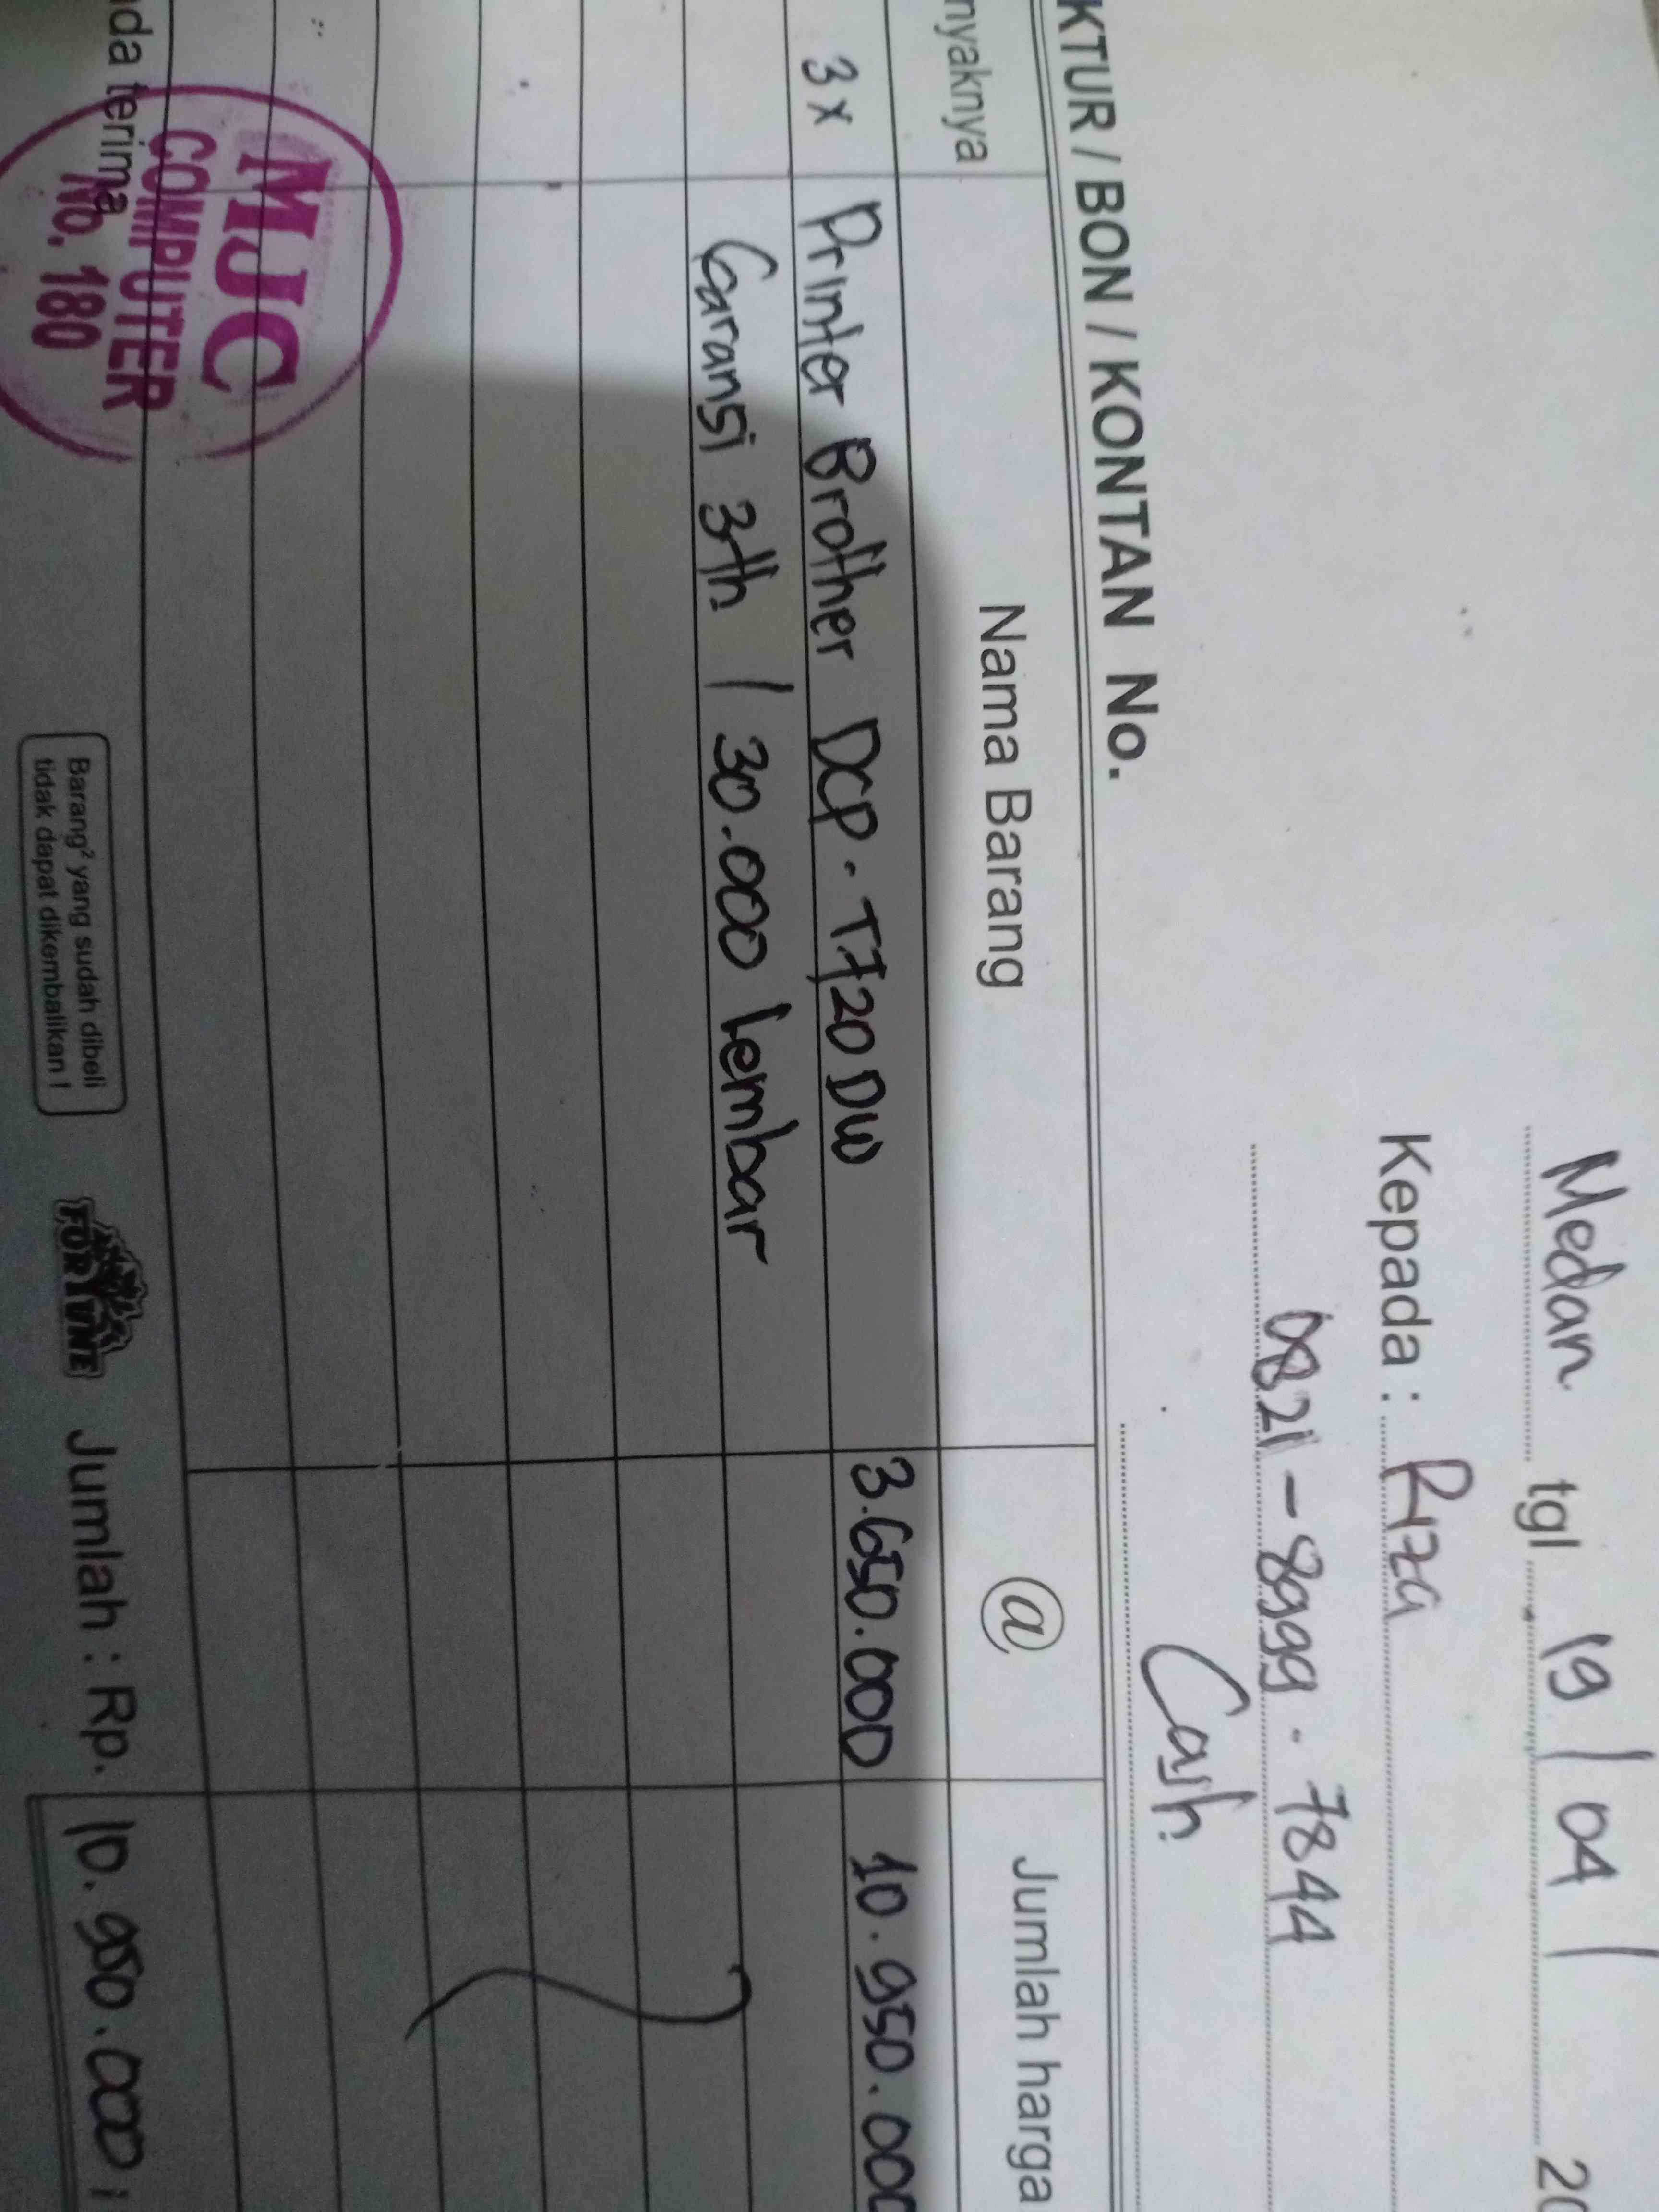 Medan tgl 19 / 04 / 20
Kepada : Riza
0821 - 8999 . 7844
Cash
KTUR / BON / KONTAN No.
nyaknya Nama Barang @ Jumlah harga
3 x Printer Brother DCP . T720DW 3.650.000 10.950.000
Garansi 3th / 30.000 lembar
nda terima
MJC
COMPUTER
No. 180
Barang² yang sudah dibeli
tidak dapat dikembalikan !
FORTUNE
Jumlah : Rp. 10.950.000